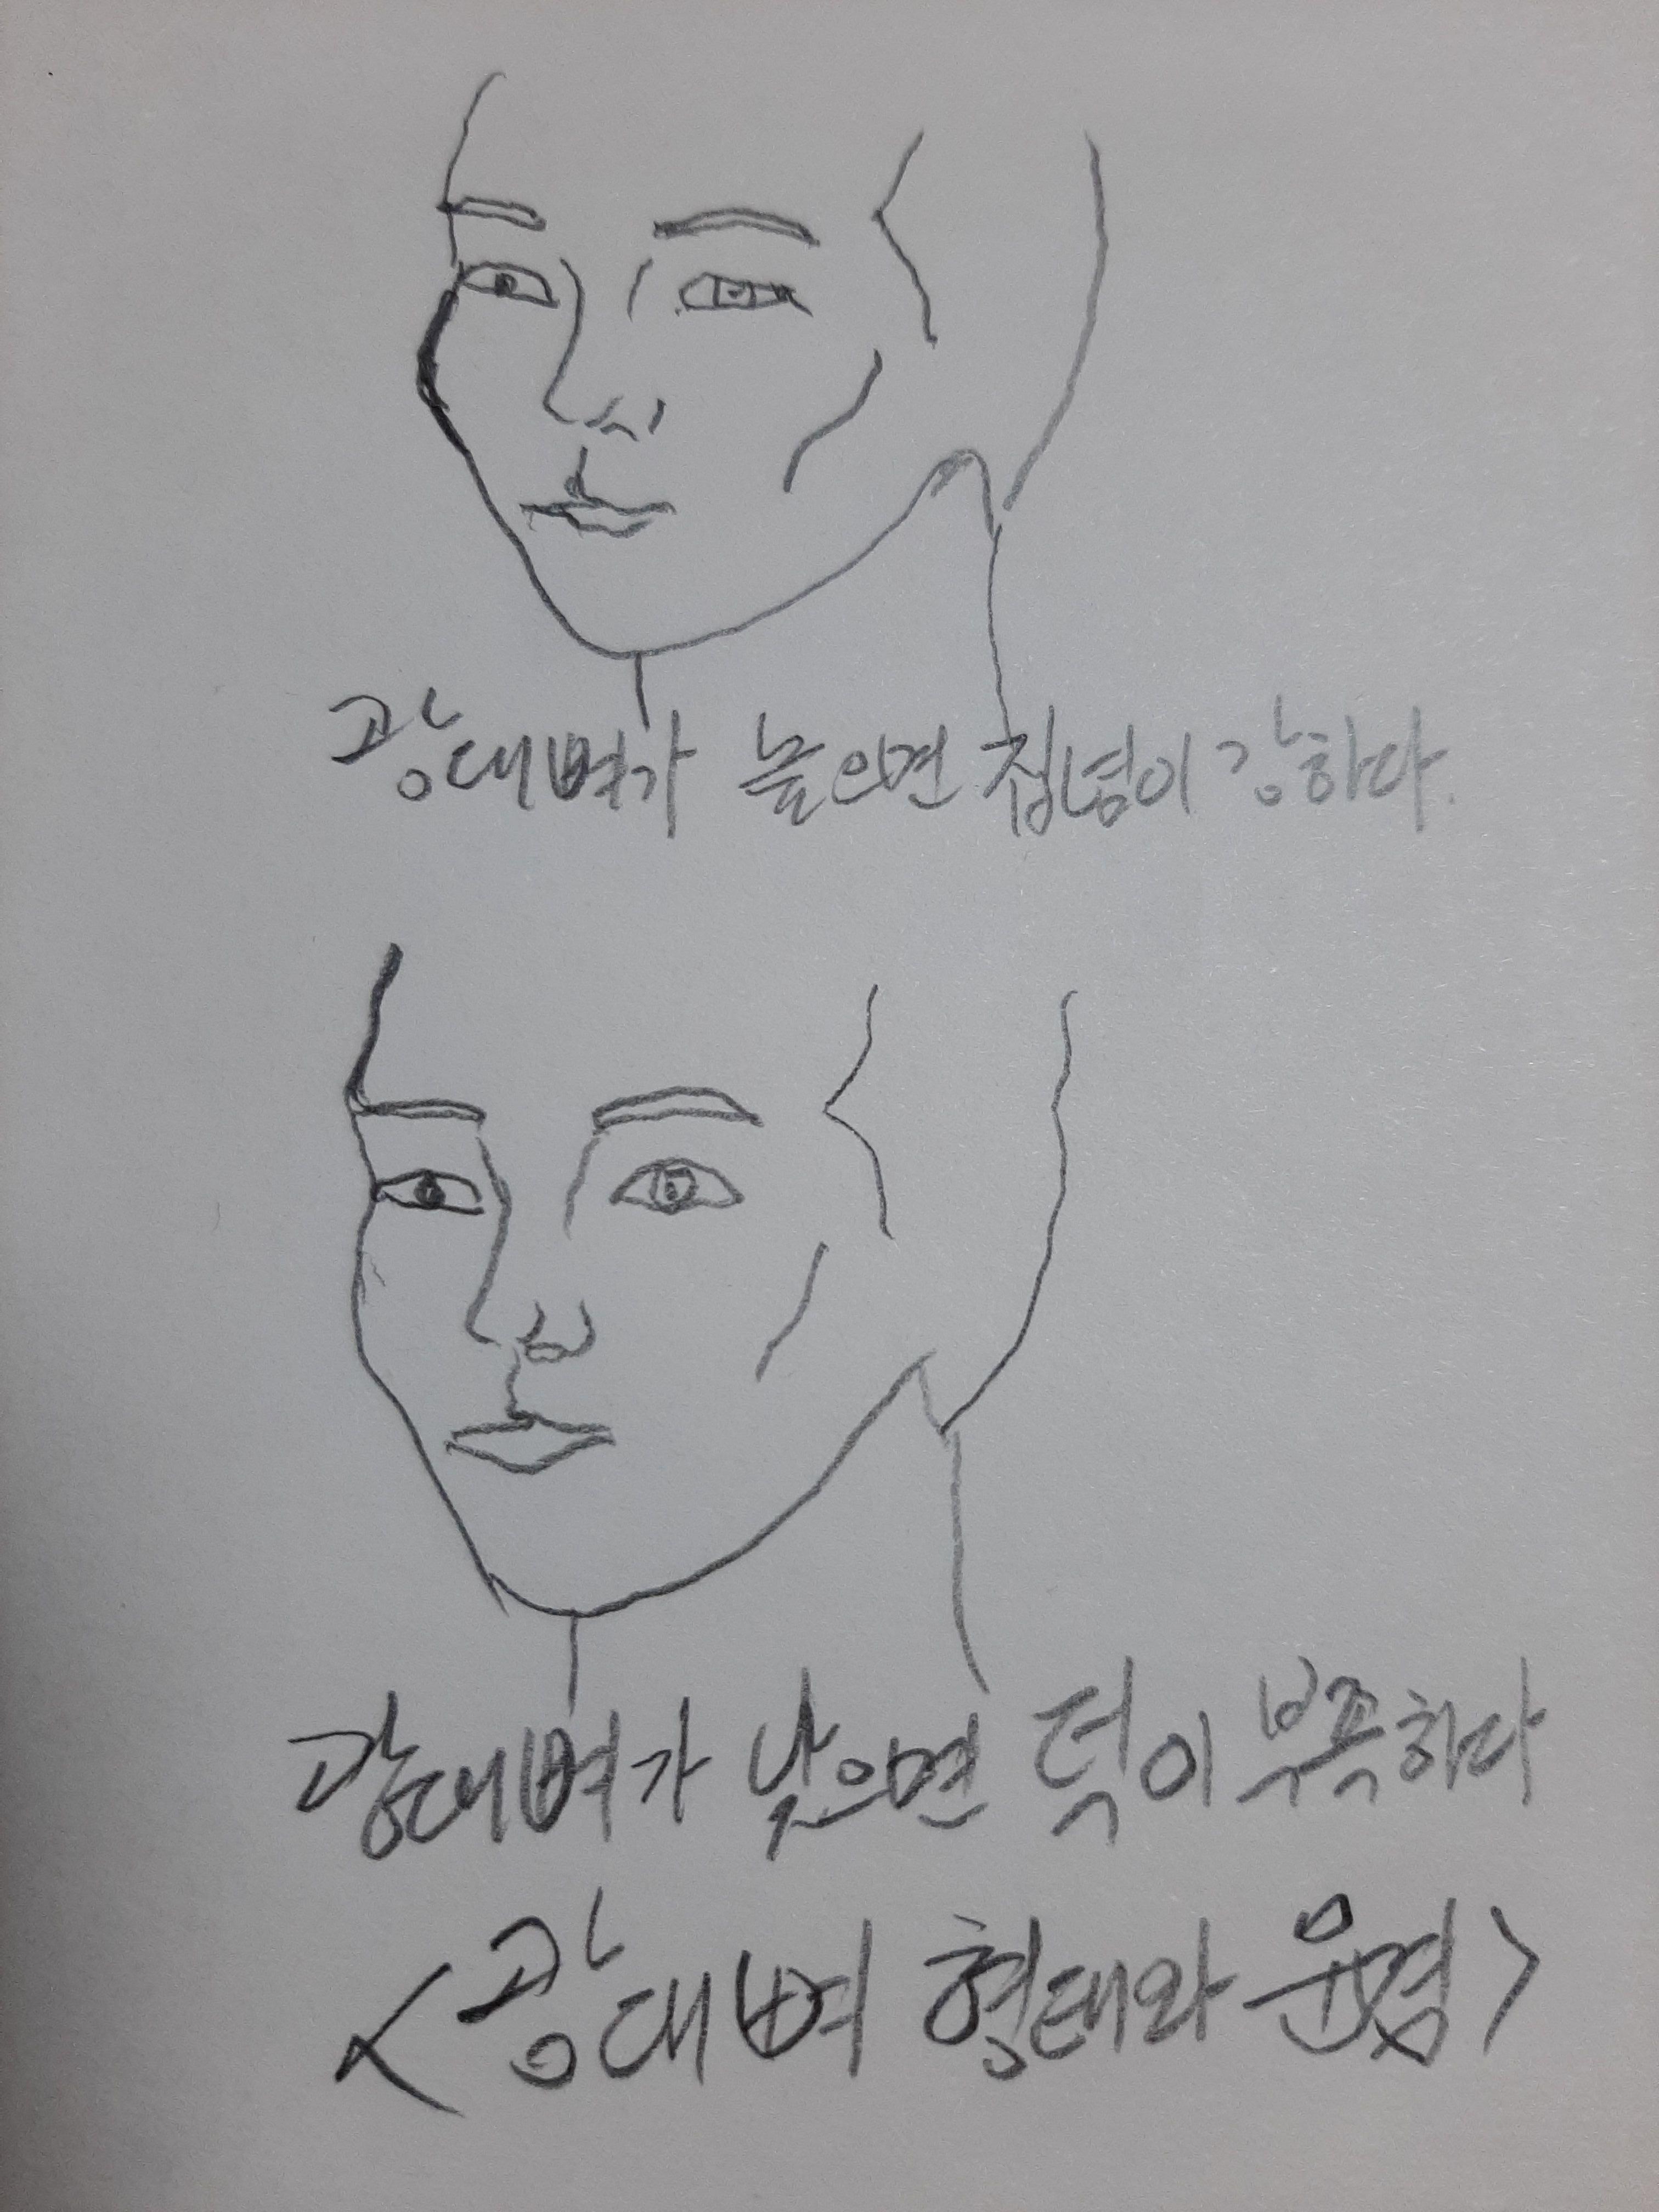 광대뼈가 높으면 집념이 강하다.
광대뼈가 낮으면 덕이 부족하다
<광대뼈 형태와 운명>